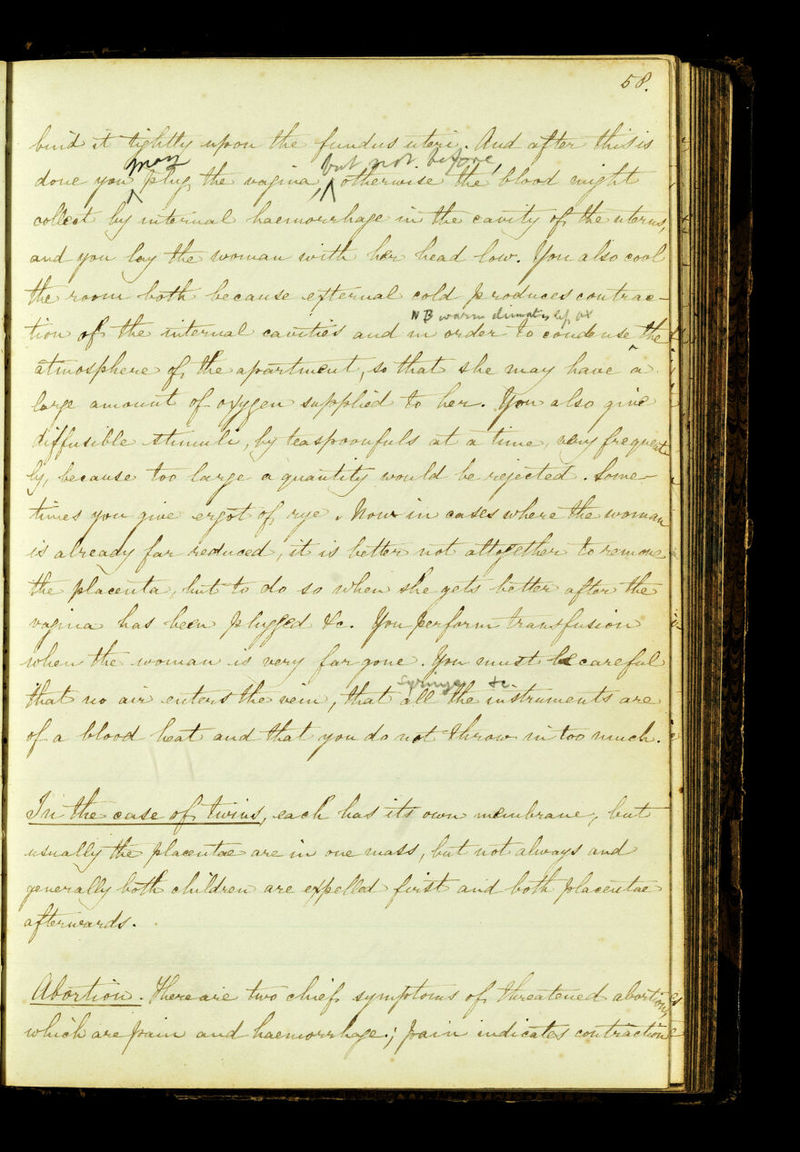 58.
bind it tightly upon the fundus uteri. And after this is
may but not before,
done you plug the vagina, otherwise the blood might
collect by internal haemorrhage in the cavity of the uterus,
and you lay the woman with her head low. You also cool
the room both because external cold produces contrac-
NB warm
tion of the internal cavities and in order to condense the
atmosphere of the apartment, so that she may have a
large amount of oxygen supplied to her. You also give
diffusible stimuli, by teaspoonfuls at a time, very frequent
ly, because too large a quantity would be rejected. Some-
times you give ergot of rye. Now in cases where the woman
is already far reduced, it is better not altogether to remove
the placenta, but to do so when she gets better after the
vagina has been plugged &c. You perform transfusion
when the woman is very far gone. You must be careful
syringe &c.
that no air enters the vein, that all the instruments are
of a blood heat and that you do not throw in too much.
In the case of twins, each has its own membrane, but
usually the placentae are in one mass, but not always and
generally both children are expelled first and both placentae
afterwards.
Abortion. There are two chief symptoms of threatened abortion,
which are pain and haemorrhage; pain indicates contraction